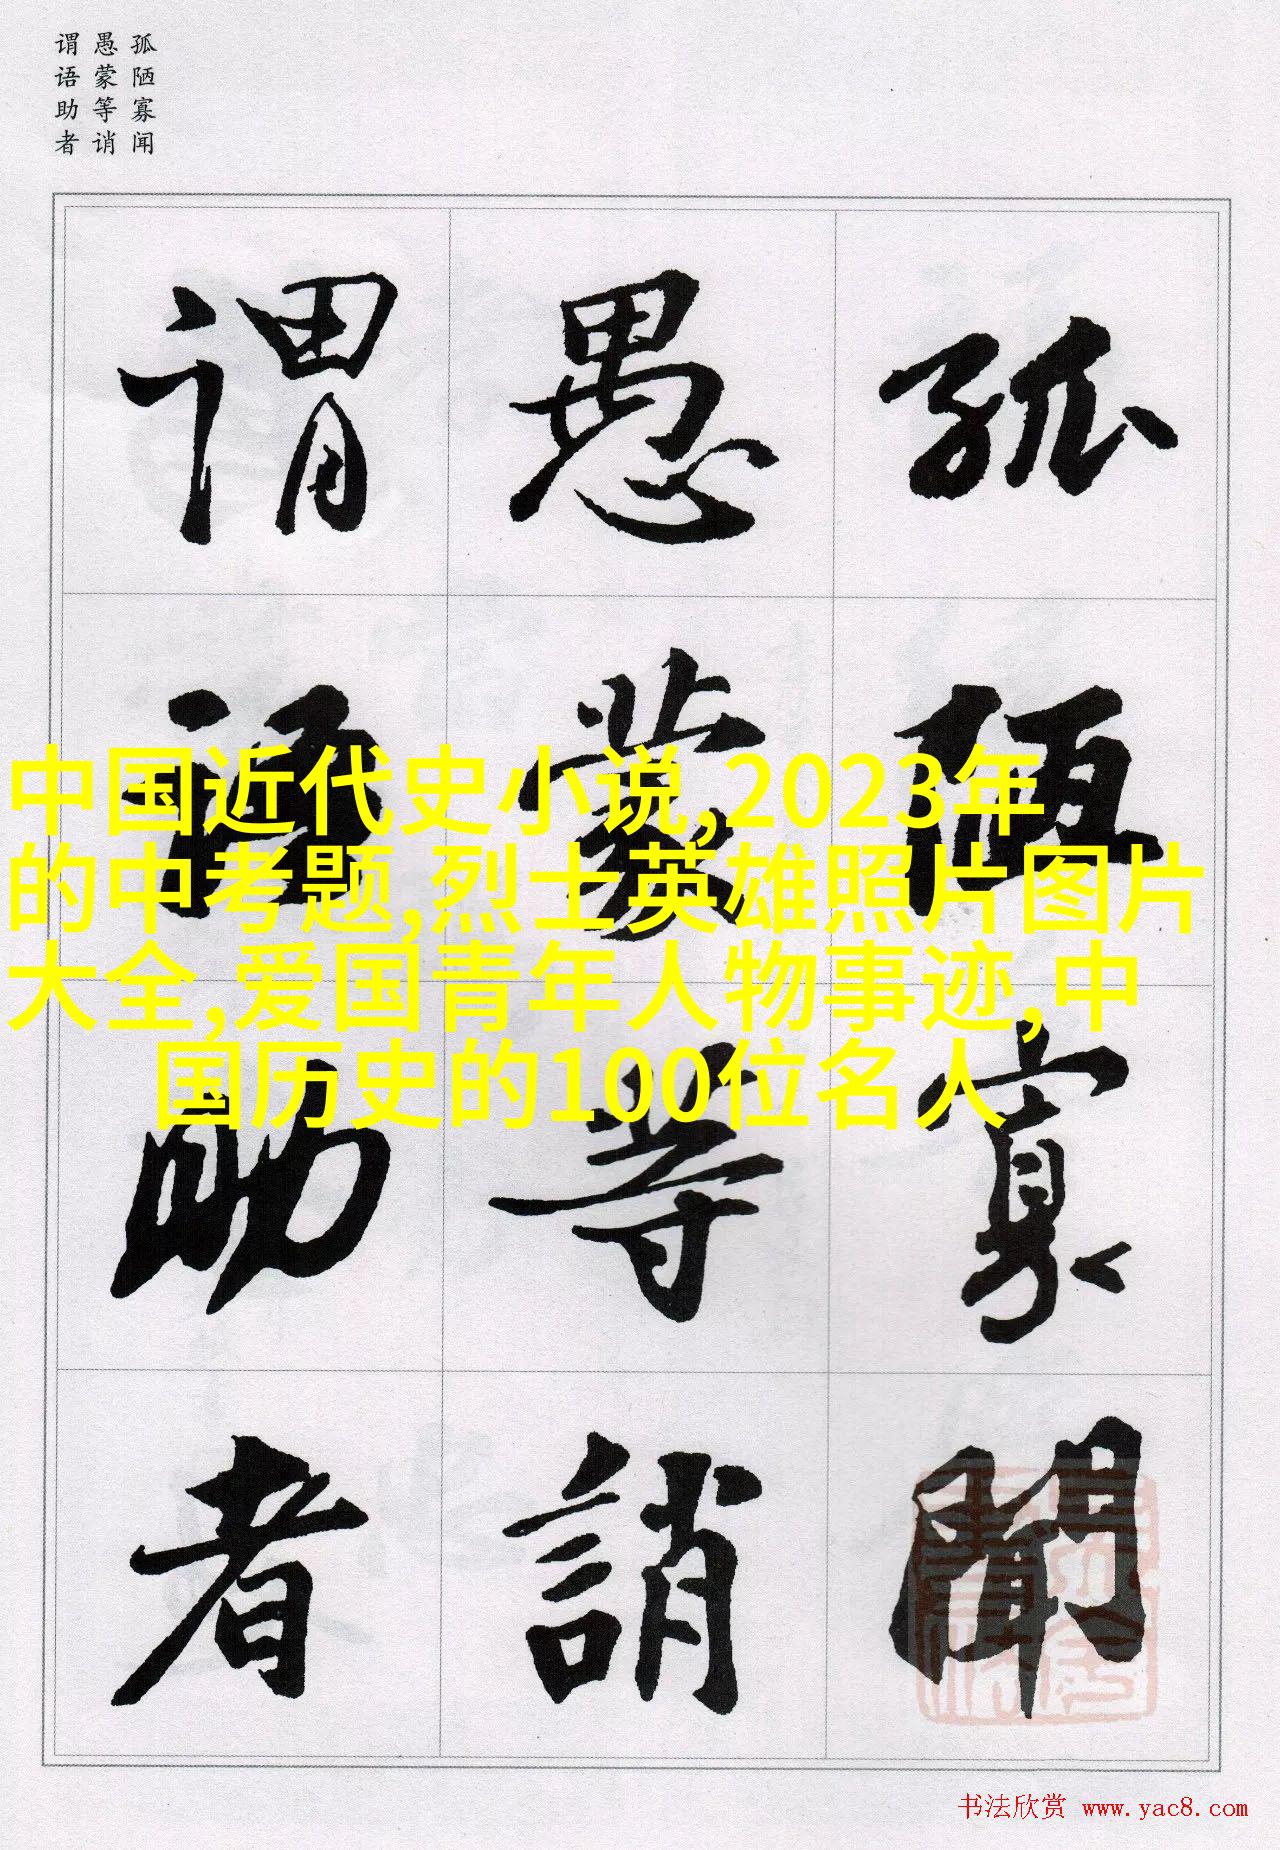 孤陋寡闻
愚蒙等诮
谓语助者
孤陋寡闻
愚蒙等誚
谓语助者
中国近代史小说,2023年
的中考题,烈士英雄照片图片
大全,爱国青年人物事迹,中
国历史的100位名人
书法欣赏 www.yac8.com